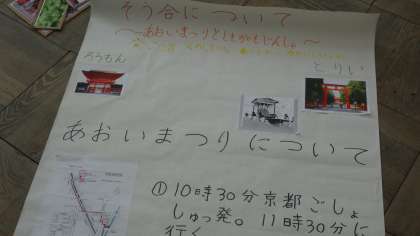 そう合について
～あおいまつりとしもがもじんじゃ～
ろうもん
とりい
あおいまつりについて
①10時30分京都ごしょ
しゅっ発。11時30分に
行く